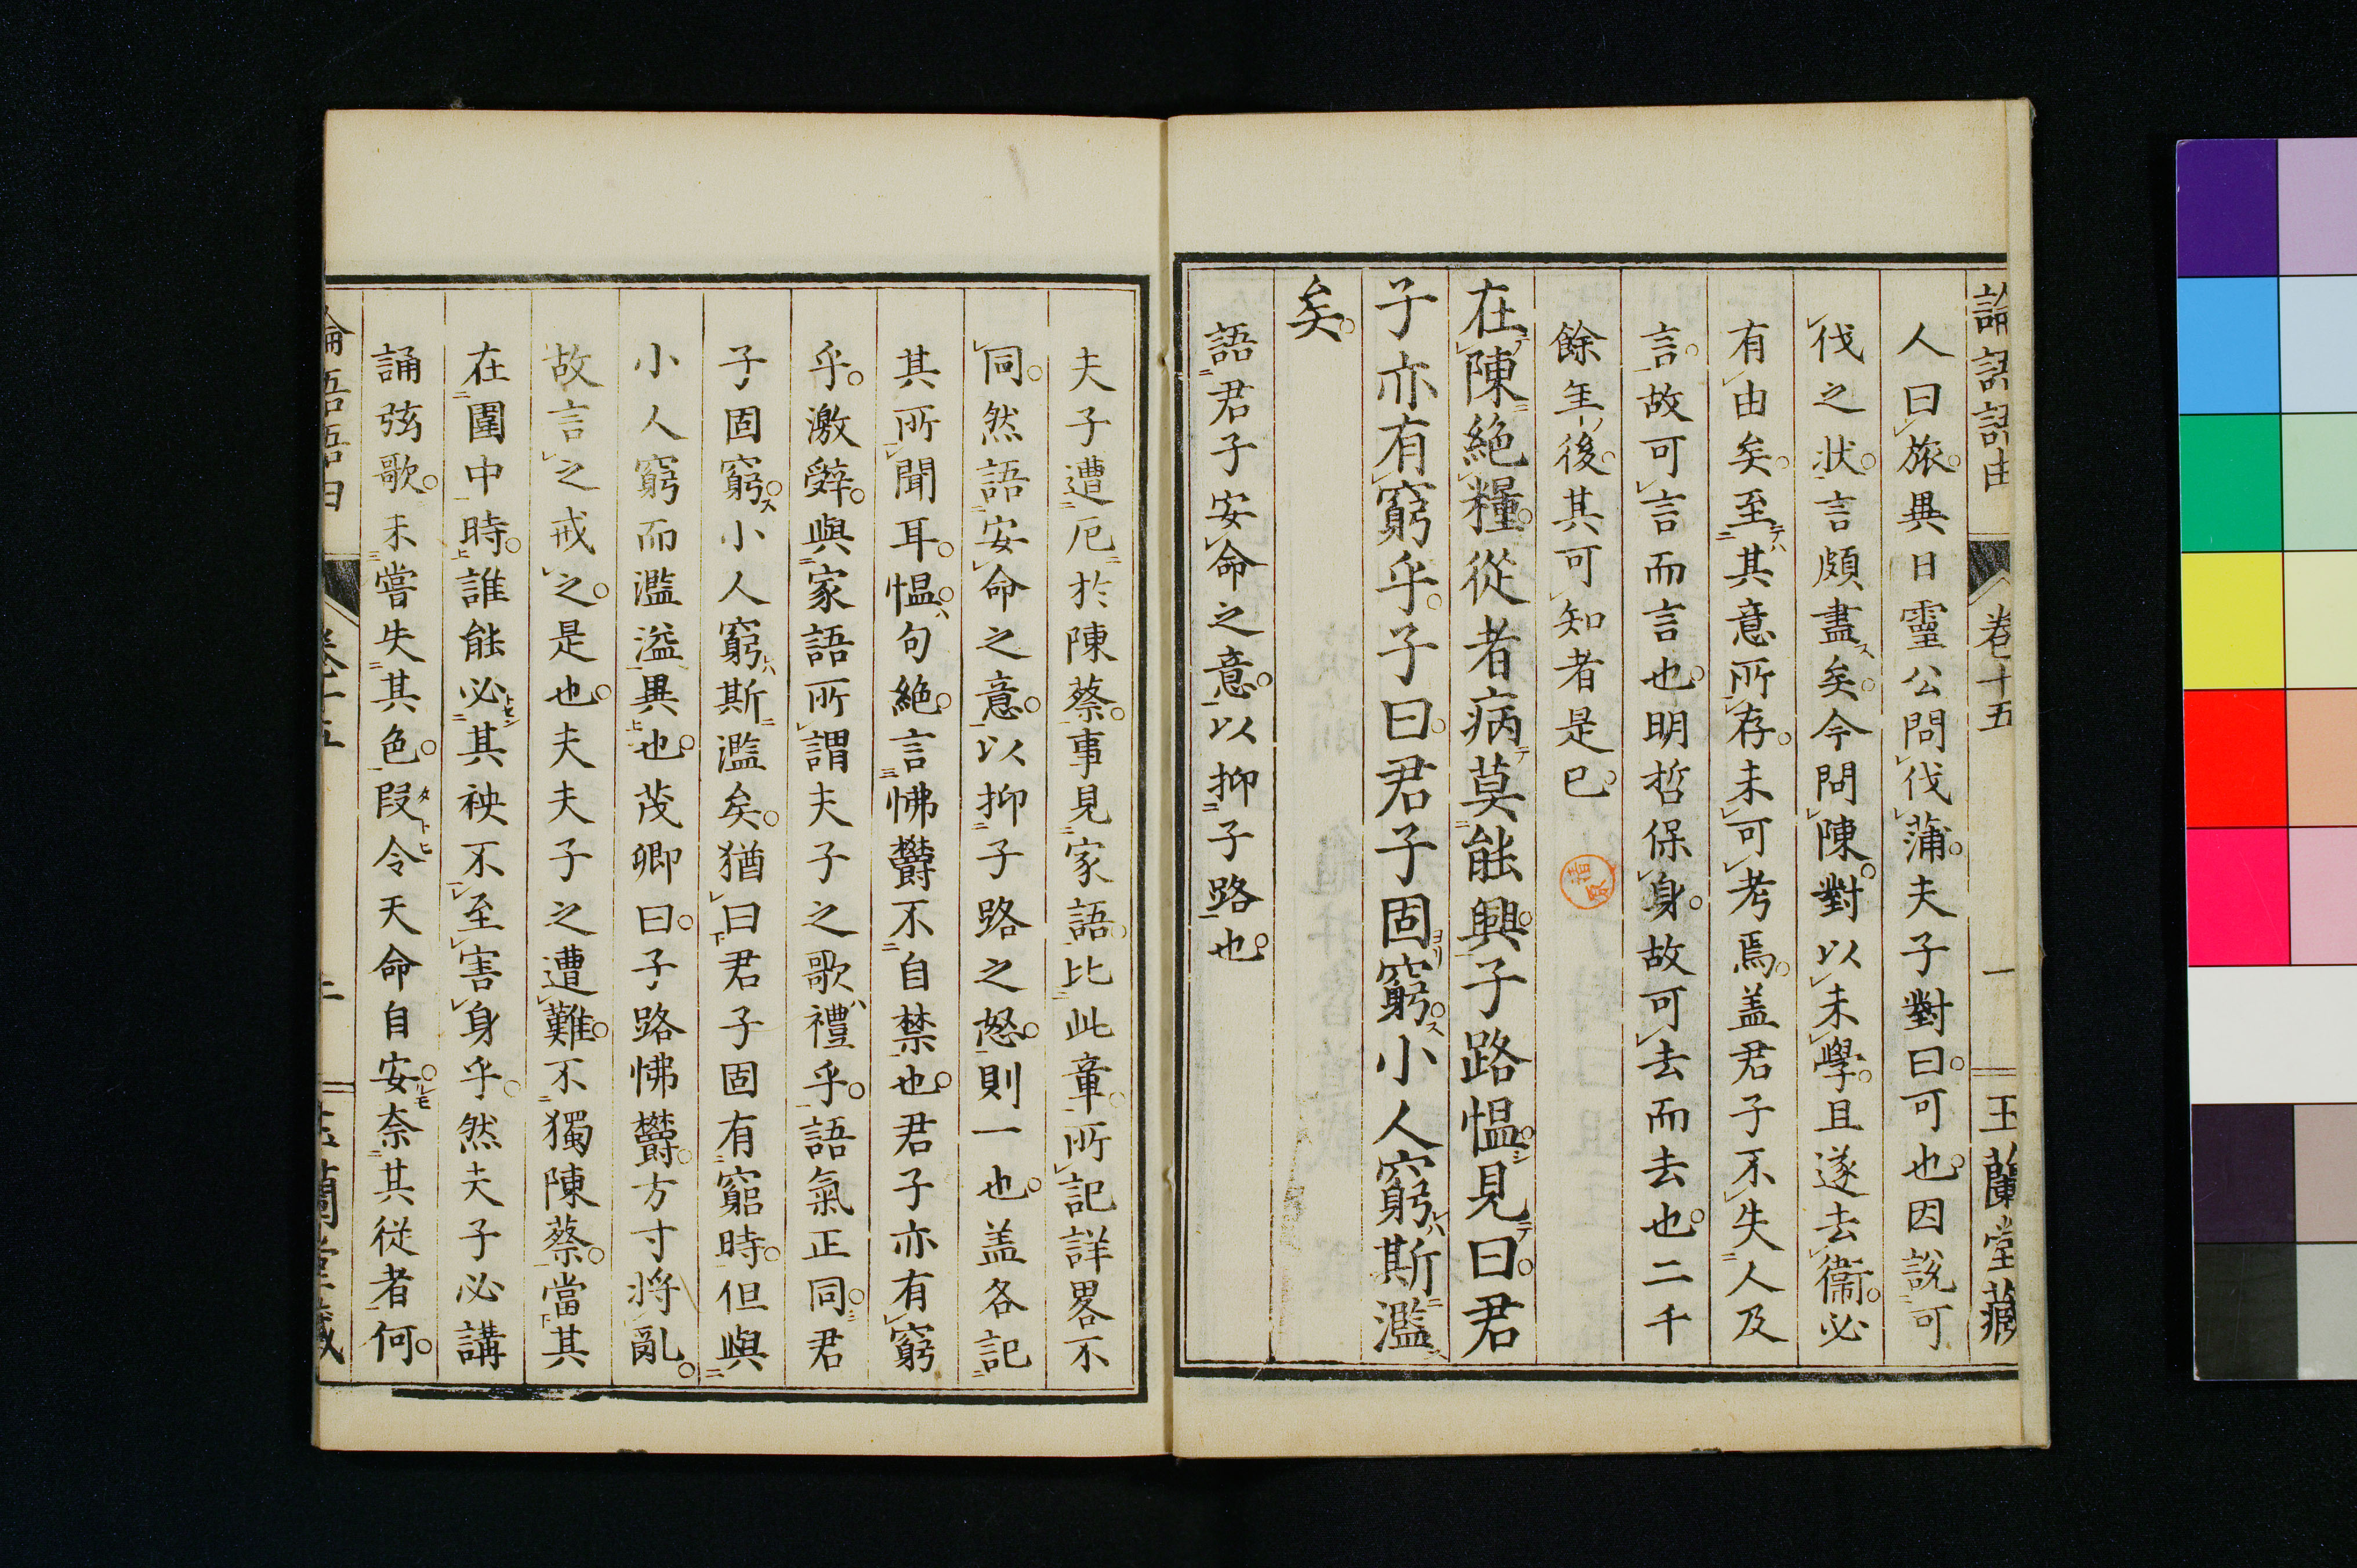 論語語由 卷十五 一 玉蘭堂藏
人曰旅。異日靈公問伐蒲。夫子對曰。可也。因說可
伐之狀。言頗盡矣。今問陳。對以未學。且遂去衞。必
有由矣。至其意所存。未可考焉。盖君子不失人及
言。故可言而言也。明哲保身。故可去而去也。二千
餘年後。其可知者是已。
在陳絕糧。從者病莫能興。子路慍見曰。君
子亦有窮乎。子曰。君子固窮。小人窮斯濫
矣。
語君子安命之意。以抑子路也。
夫子遭厄於陳蔡。事見家語。比此章。所記詳畧不
同。然語安命之意。以抑子路之怒。則一也。盖各記
其所聞耳。慍。句絕。言怫鬱不自禁也。君子亦有窮
乎。激辭。與家語所謂夫子之歌禮乎。語氣正同。君
子固窮。小人窮斯濫矣。猶曰君子固有窮時。但與
小人窮而濫溢異也。茂卿曰。子路怫鬱。方寸將亂。
故言之戒之。是也。夫夫子之遭難。不獨陳蔡。當其
在圍中時。誰能必其殃不至害身乎。然夫子必講
誦弦歌。未嘗失其色。叚令天命自安。奈其從者何。
論語語由 卷十五 二 玉蘭堂藏